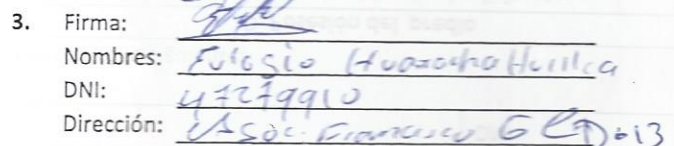 3. Firma:
Nombres: Eulogio Huaracha Huillca
DNI: 47279910
Dirección: Asoc. Francisco